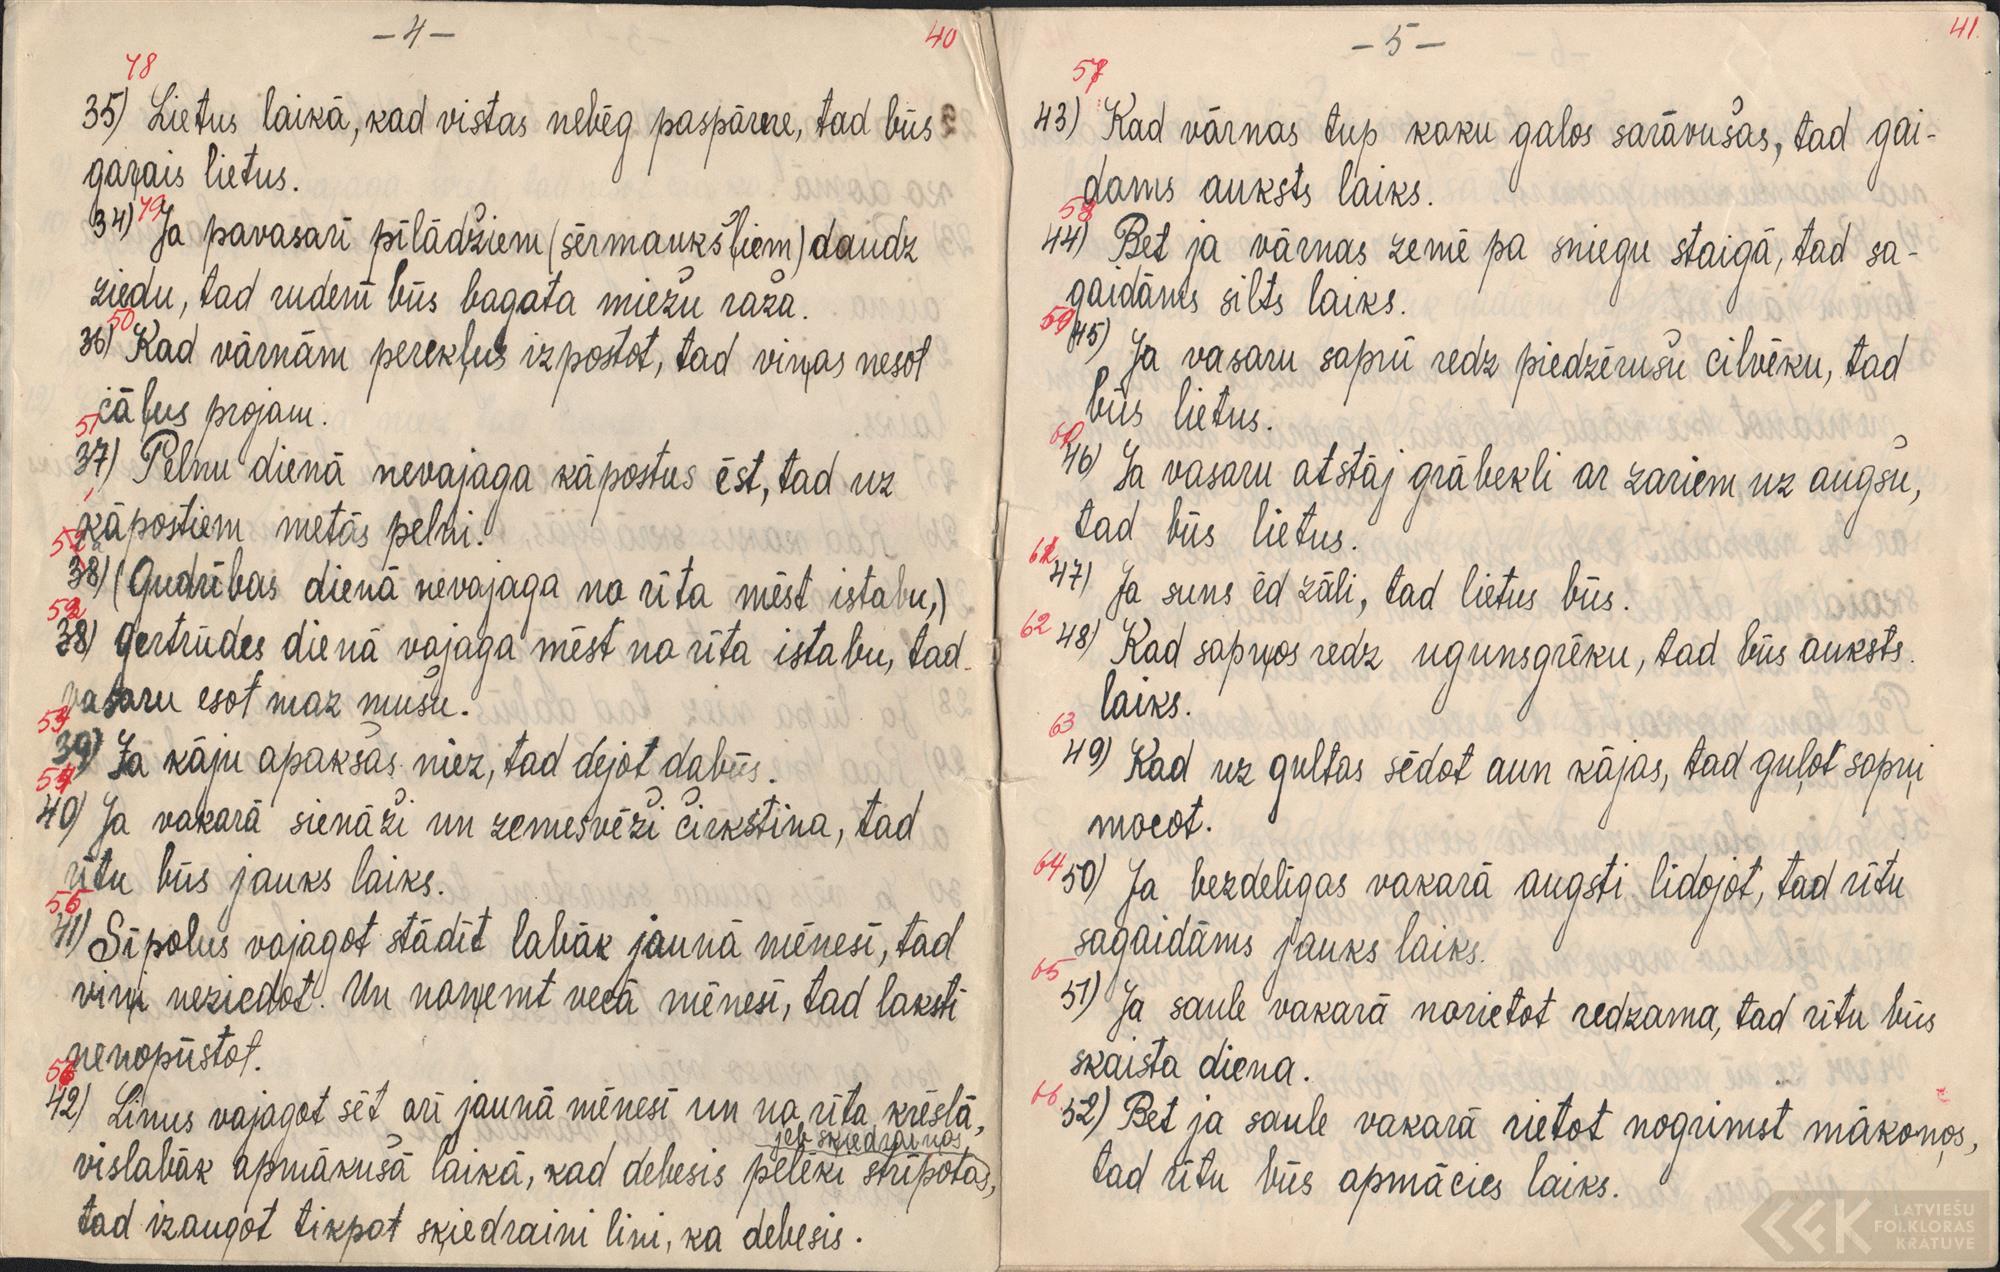 -4-
40
48
35) Lietus laikā, kad vistas nebēg paspārne, tad būs
garais lietus.
49
34) Ja pavasarī pīlādžiem (sērmaukšļiem) daudz
ziedu, tad rudenī būs bagata miežu raža.
50
36) Kad vārnām perekļus izpostot, tad viņas nesot
cāļus projam.
51
37) Pelnu dienā nevajaga kāpostus ēst, tad uz
kāpostiem metās pelni.
52
38) (Gudrības dienā nevajaga no rīta mēst istabu,)
38) Gertrūdes dienā vajaga mēst no rīta istabu, tad
vasaru esot maz mušu.
39) Ja kāju apakšas niez, tad dejot dabūs.
40) Ja vakarā sienāži un zemesvēži čirkstina, tad
rītu būs jauks laiks.
41) Sīpolus vajagot stādīt labāk jaunā mēnesī, tad
viņi neziedot. Un noņemt vecā mēnesī, tad laksti
nenopūstot.
42) Linus vajagot sēt arī jaunā mēnesī un no rīta krēslā,
jeb skiedrainas
vislabāk apmākušā laikā, kad debesis pelēki strīpotas,
tad izaugot tikpat skiedraini lini, ka debesis.
-5-
41.
57
43) Kad vārnas tup koku galos sarāvušas, tad gai-
dams auksts laiks.
58
44) Bet ja vārnas zemē pa sniegu staigā, tad sa-
gaidāms silts laiks.
59
45) Ja vasaru sapnī redz piedzērušu cilvēku, tad
būs lietus.
60
46) Ja vasaru atstāj grābekli ar zariem uz augšu,
tad būs lietus.
61
47) Ja suns ēd zāli, tad lietus būs.
62
48) Kad sapņos redz ugunsgrēku, tad būs auksts
laiks.
63
49) Kad uz gultas sēdot aun kājas, tad guļot sapņi
mocot.
64
50) Ja bezdelīgas vakarā augsti lidojot, tad rītu
sagaidāms jauks laiks.
65
51) Ja saule vakarā norietot redzama, tad rītu būs
skaista diena.
66.
52) Bet ja saule vakarā rietot nogrimst mākoņos,
tad rītu būs apmācies laiks.
LATVIEŠU
FOLKLORAS
KRĀTUVE